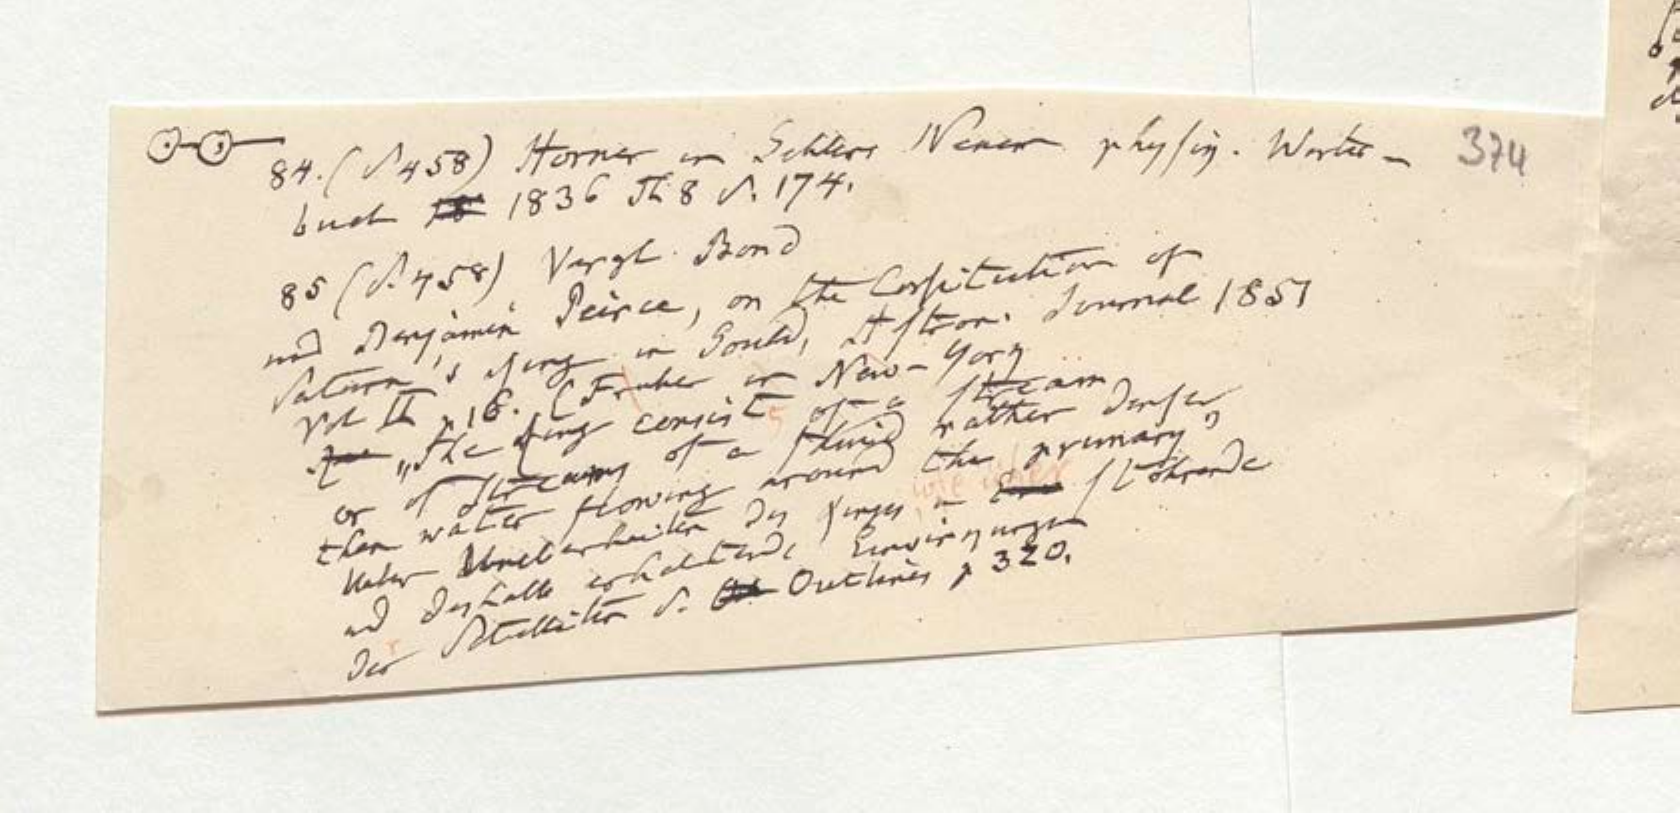 84. (S. 458) Horner in Gehlers Neuem physik. Wörter- 374
buch 1836 Th 8 S. 174.
85 (S. 458) Vergl. Bond
und Benjamin Peirce, on the Constitution of
Saturn's Ring in Gould, Astron. Journal 1851
Vol II p. 16. (Fruher in New-York
„The Ring consist of a stream
or of streams of a fluid rather denser
than water flowing around the primary"
Ueber Unebenheiten des Ringes, wie über störende
und deshalb erhaltende Einwirkungen
der Satelliten S. Outlines p 320.